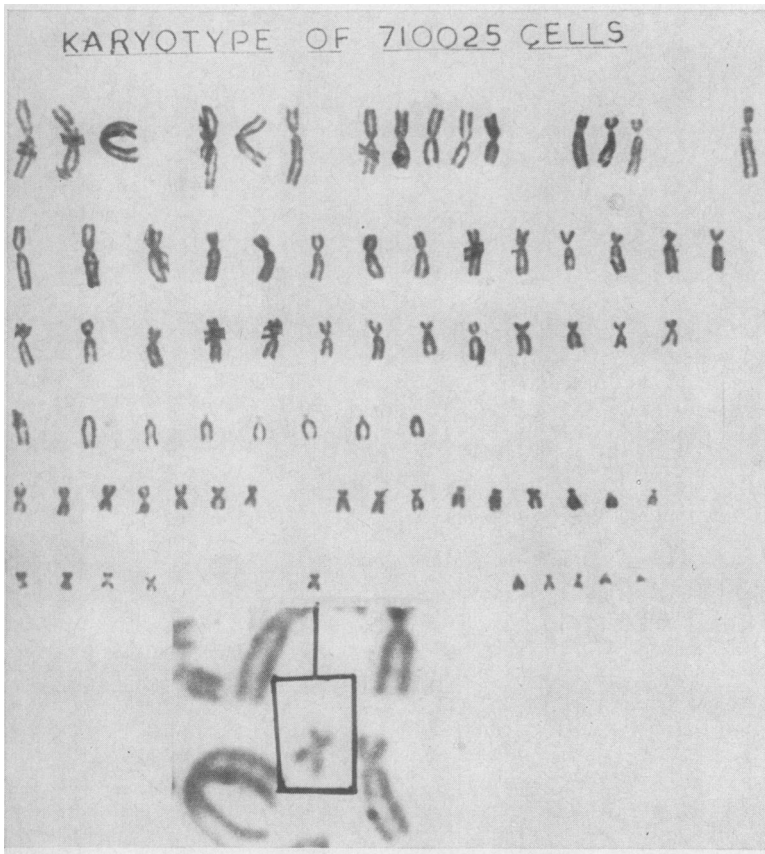 KARYOTYPE OF 710025 CELLS